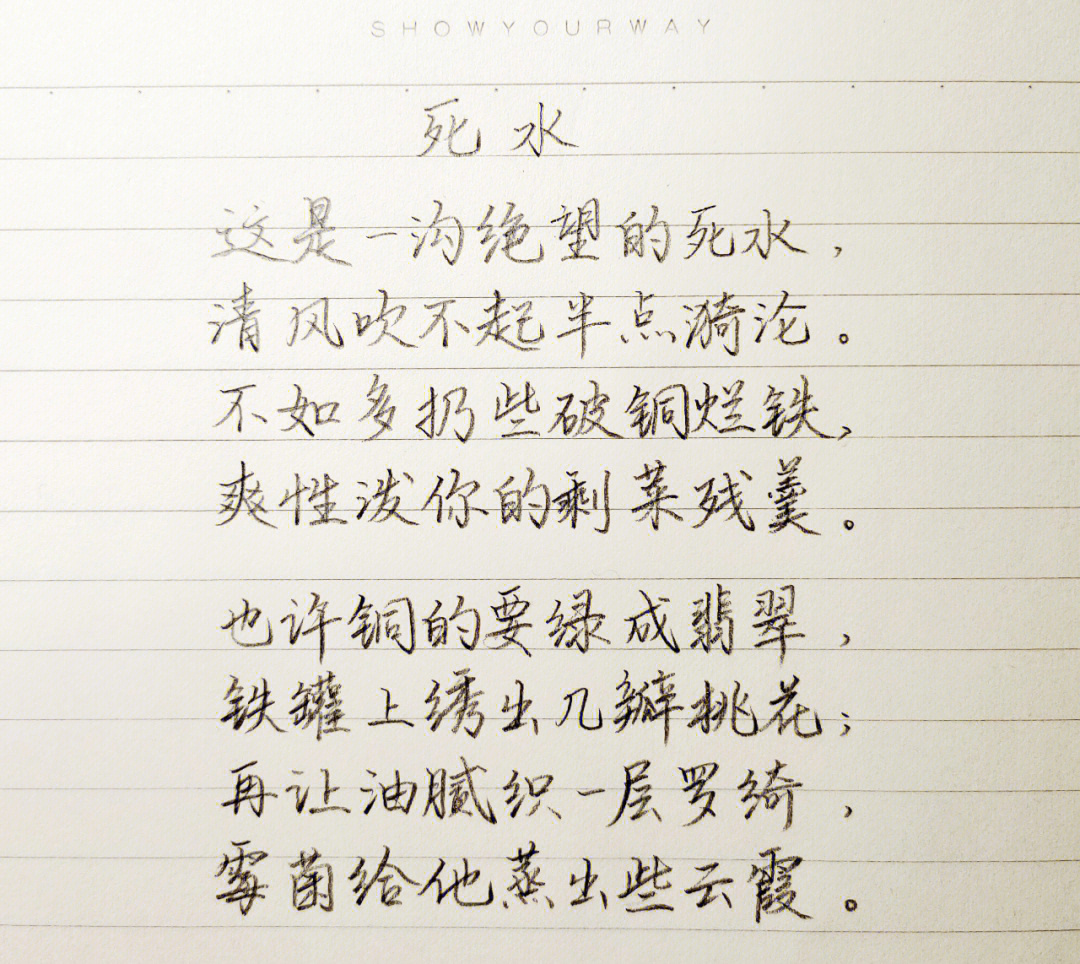 SHOWYOURWAY
死水
这是一沟绝望的死水，
清风吹不起半点漪沦。
不如多扔些破铜烂铁，
爽性泼你的剩菜残羹。
也许铜的要绿成翡翠，
铁罐上绣出几瓣桃花；
再让油腻织一层罗绮，
霉菌给他蒸出些云霞。